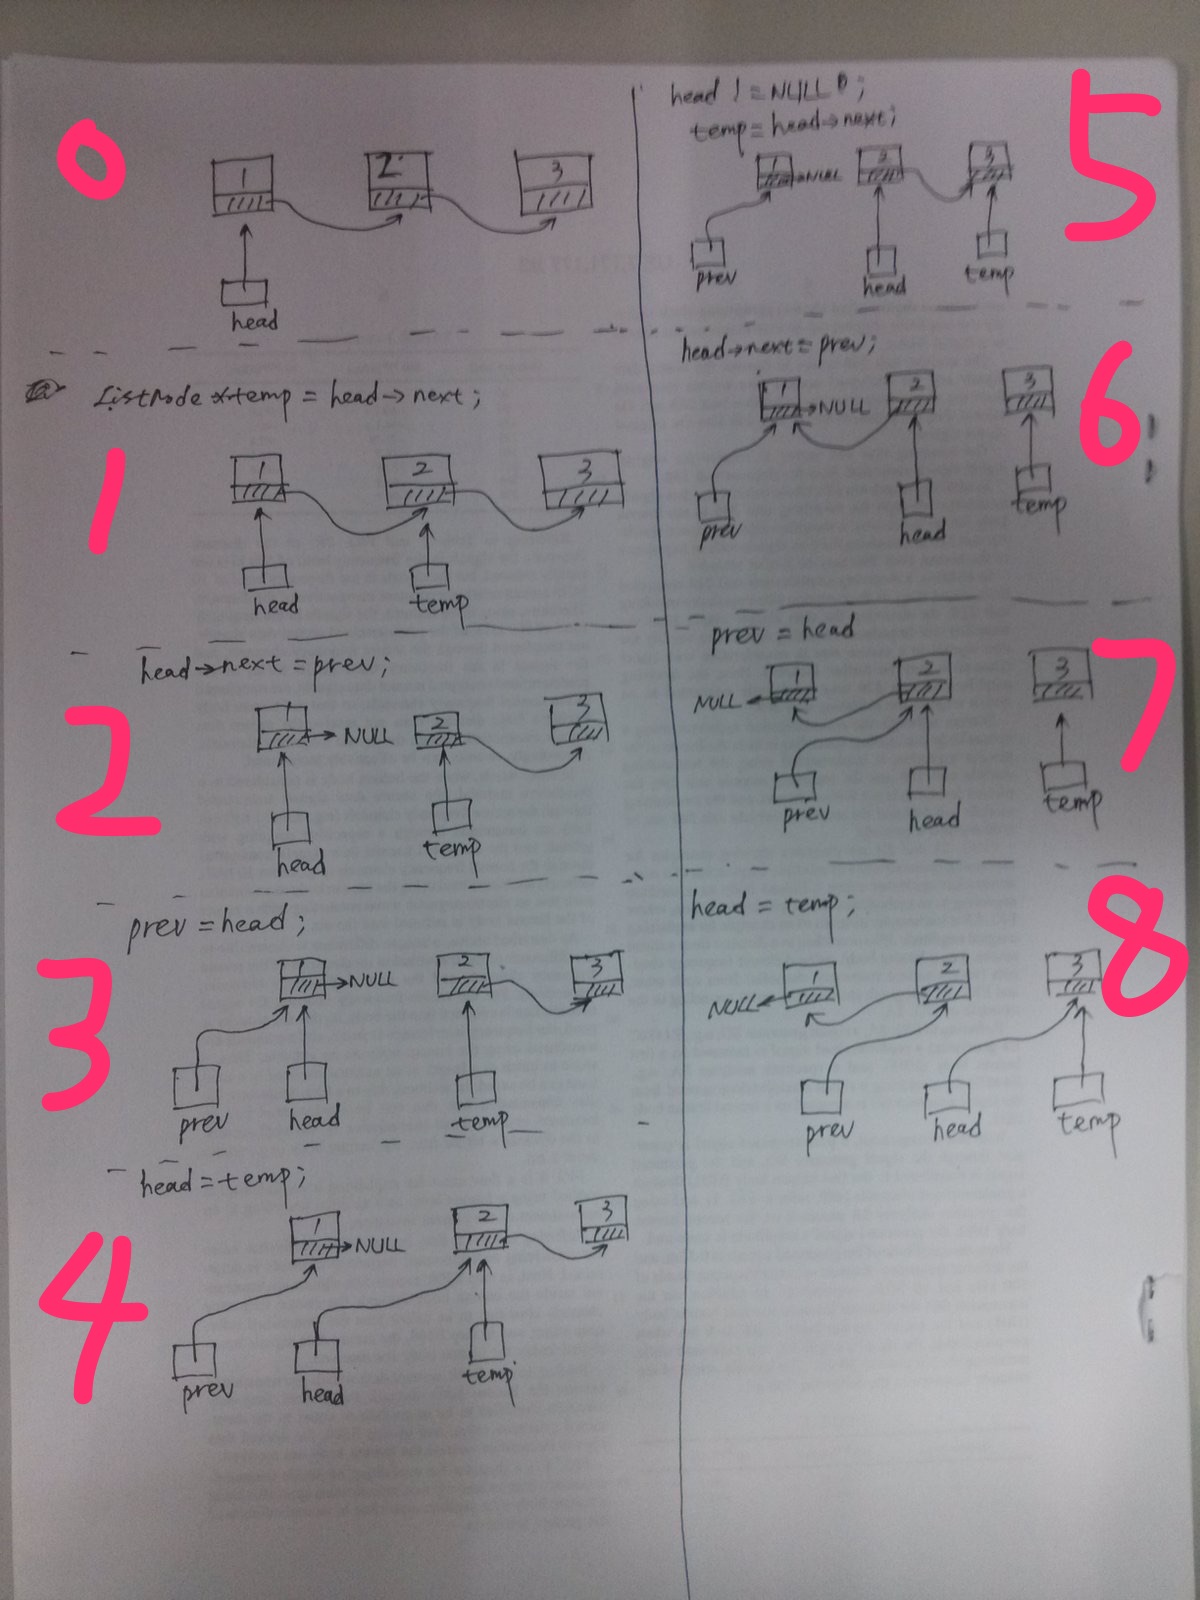 0
1 2 3
head
ListNode *temp = head->next;
1
1 2 3
head temp
head->next = prev;
2
1 NULL 2 3
head temp
prev = head;
3
1 NULL 2 3
prev head temp
head = temp;
4
1 NULL 2 3
prev head temp
head != NULL;
temp = head->next;
5
1 NULL 2 3
prev head temp
head->next = prev;
6
1 NULL 2 3
prev head temp
prev = head
7
NULL 1 2 3
prev head temp
head = temp;
8
NULL 1 2 3
prev head temp